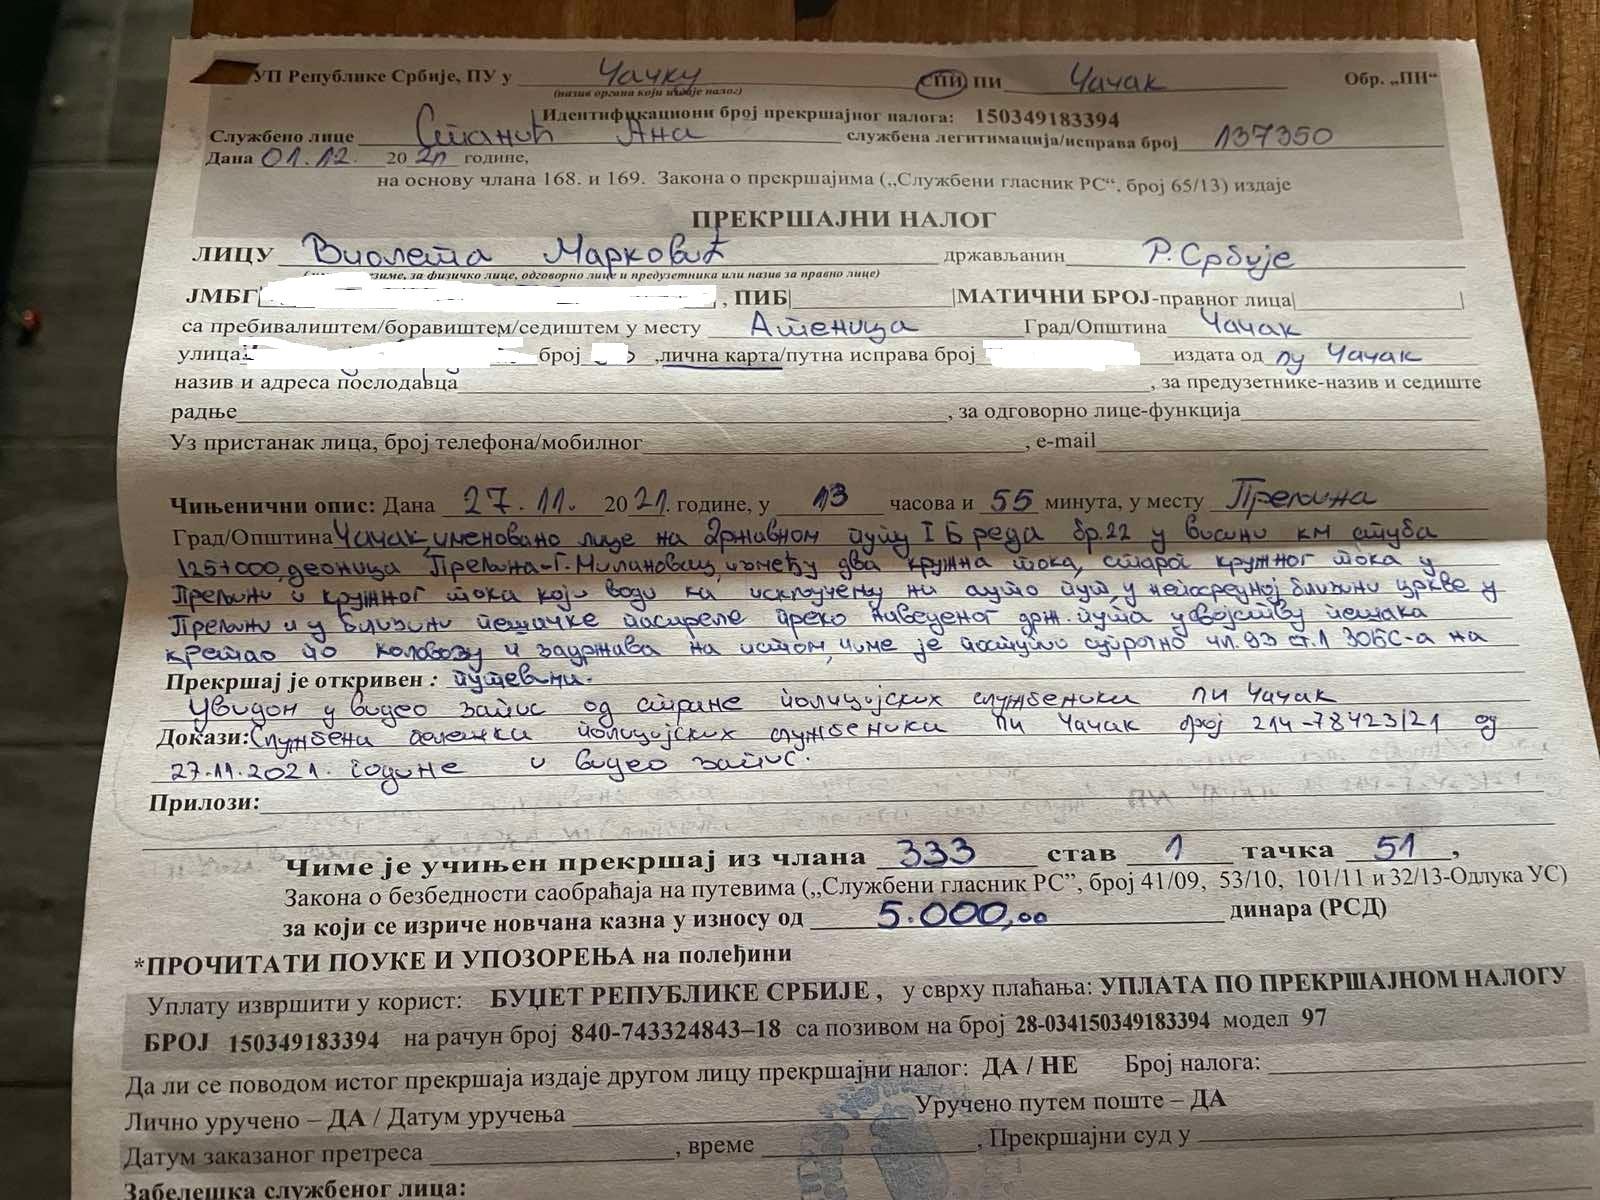 УП Републике Србије, ПУ у Чачку СПИ, ПИ Чачак Обр. „ПН“
(назив органа који издаје налог)
Идентификациони број прекршајног налога: 150349183394
Службено лице Станић Ана службена легитимација/исправа број 137350
Дана 01.12. 2021 године,
на основу члана 168. и 169. Закона о прекршајима („Службени гласник РС“, број 65/13) издаје
ПРЕКРШАЈНИ НАЛОГ
ЛИЦУ Виолета Марковић држављанин Р. Србије
зиме, за физичко лице, одговорно лице и предузетника или назив за правно лице)
ЈМБГ| , ПИБ| |МАТИЧНИ БРОЈ-правног лица| |
са пребивалиштем/боравиштем/седиштем у месту Атеница Град/Општина Чачак
улица број , лична карта/путна исправа број издата од ПУ Чачак
назив и адреса послодавца , за предузетнике-назив и седиште
радње , за одговорно лице-функција
Уз пристанак лица, број телефона/мобилног , e-mail
Чињенични опис: Дана 27.11. 2021. године, у 13 часова и 55 минута, у месту Прељина
Град/Општина Чачак, именовано лице на државном путу I Б реда бр. 22 у висини км стуба
125+000, деоница Прељина-Г. Милановац, између два кружна тока, старог кружног тока у
Прељини и кружног тока који води ка искључењу на ауто пут, у непосредној близини цркве у
Прељини и у близини пешачке пасареле преко наведеног држ. пута у својству пешака
кретао по коловозу и задржава на истом, чиме је поступио супротно чл. 93 ст. 1 ЗОБС-а на
Прекршај је откривен : путевима.
Увидом у видео запис од стране полицијских службеника ПИ Чачак
Докази: Службена белешка полицијских службеника ПИ Чачак број 214-78423/21 од
27.11.2021. године и видео запис.
Прилози:
Чиме је учињен прекршај из члана 333 став 1 тачка 51 ,
Закона о безбедности саобраћаја на путевима („Службени гласник РС”, број 41/09, 53/10, 101/11 и 32/13-Одлука УС)
за који се изриче новчана казна у износу од 5.000,00 динара (РСД)
*ПРОЧИТАТИ ПОУКЕ И УПОЗОРЕЊА на полеђини
Уплату извршити у корист: БУЏЕТ РЕПУБЛИКЕ СРБИЈЕ , у сврху плаћања: УПЛАТА ПО ПРЕКРШАЈНОМ НАЛОГУ
БРОЈ 150349183394 на рачун број 840-743324843–18 са позивом на број 28-034150349183394 модел 97
Да ли се поводом истог прекршаја издаје другом лицу прекршајни налог: ДА / НЕ Број налога:
Лично уручено – ДА / Датум уручења Уручено путем поште – ДА
Датум заказаног претреса , време , Прекршајни суд у
Забелешка службеног лица: